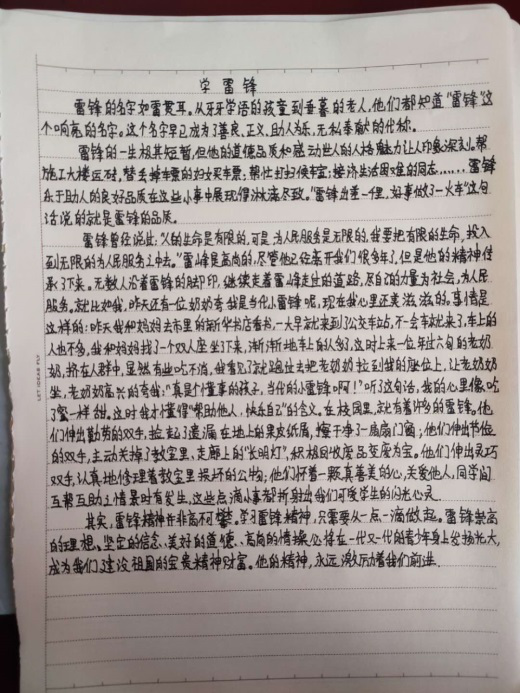 学雷锋
雷锋的名字如雷贯耳。从牙牙学语的孩童到垂暮的老人,他们都知道"雷锋"这
个响亮的名字。这个名字早已成为了善良、正义、助人为乐、无私奉献的代称。
雷锋的一生极其短暂,但他的道德品质和感动世人的人格魅力让人印象深刻。帮
施工大楼运砖,替丢掉车票的妇女买车票;帮忙打扫候车室;接济生活困难的同志……雷锋
乐于助人的良好品质在这些小事中展现得淋漓尽致。"雷锋出差一千里,好事做了一火车"这句
话说的就是雷锋的品质。
雷锋曾经说过:"人的生命是有限的,可是,为人民服务是无限的,我要把有限的生命,投入
到无限的为人民服务之中去。"雷峰是高尚的,尽管他已经离开我们很多年了,但是他的精神传
承了下来。无数人沿着雷锋的脚印,继续走着雷峰走过的道路,尽自己的力量为社会,为人民
服务。就比如我,昨天还有一位奶奶夸我是当代小雷锋呢,现在我心里还美滋滋的。事情是
这样的:昨天我和妈妈去市里的新华书店看书,一大早就来到了公交车站,不一会车就来了,车上的
人也不多,我和妈妈找了一个双人座坐了下来,渐渐地车上的人多了,这时上来一位年过六旬的老奶
奶,挤在人群中,显然有些吃不消,我看见了就跑过去把老奶奶拉到我的座位上,让老奶奶
坐,老奶奶高兴的夸我:"真是个懂事的孩子,当代的小雷锋啊!"听了这句话,我的心里像吃
了蜜一样甜,这时我才懂得"帮助他人,快乐自己"的含义。在校园里,就有着许多的雷锋。他
们伸出勤劳的双手,捡起了遗漏在地上的果皮纸屑,擦干净了一扇扇门窗;他们伸出节俭
的双手,主动关掉了教室里、走廊上的"长明灯",积极回收废品变废为宝。他们伸出灵巧
双手,认真地修理着教室里损坏的公物;他们怀着一颗真善美的心,关爱他人,同学间
互帮互助之情景时有发生,这些点滴小事都折射出我们可爱学生的闪光心灵.
其实,雷锋精神并非高不可攀。学习雷锋精神,只需要从一点一滴做起。雷锋崇高
的理想、坚定的信念、美好的道德、高尚的情操必将在一代又一代的青少年身上发扬光大,
成为我们建设祖国的宝贵精神财富。他的精神,永远激励着我们前进.
LET IDEAS FLY